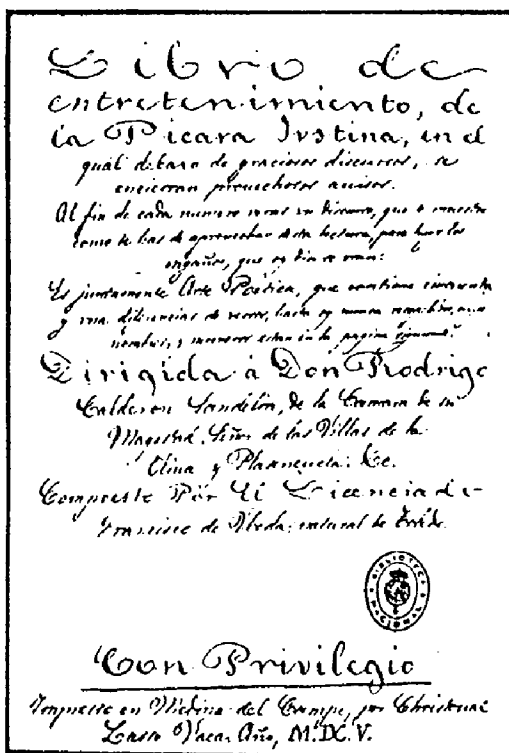 Libro de
entretenimiento, de
la Picara Ivstina, en el
qual debaxo de graciosos discursos, se
encierran prouechosos auisos.
Al fin de cada numero veras un discurso, que te muestra
como te has de aprouechar desta lectura, para huir los
engaños, que oy dia se vsan:
Es juntamente Arte Poetica, que contiene cincuenta
y vna diferencias de versos, hasta oy nunca recopilados, cuyos
nombres, y numeros estan en la pagina siguiente.
Dirigida à Don Rodrigo
Calderon Sandelin, de la Camara de su
Magestad. Señor de las Villas de la
Oliua y Plasençuela. &c.
Compuesto Por El Licenciado
Francisco de Vbeda, natural de Toledo.
BIBLIOTECA NACIONAL
Con Privilegio
Impresso en Medina del Campo, por Christoual
Lasso Vaca. Año, M.DC.V.